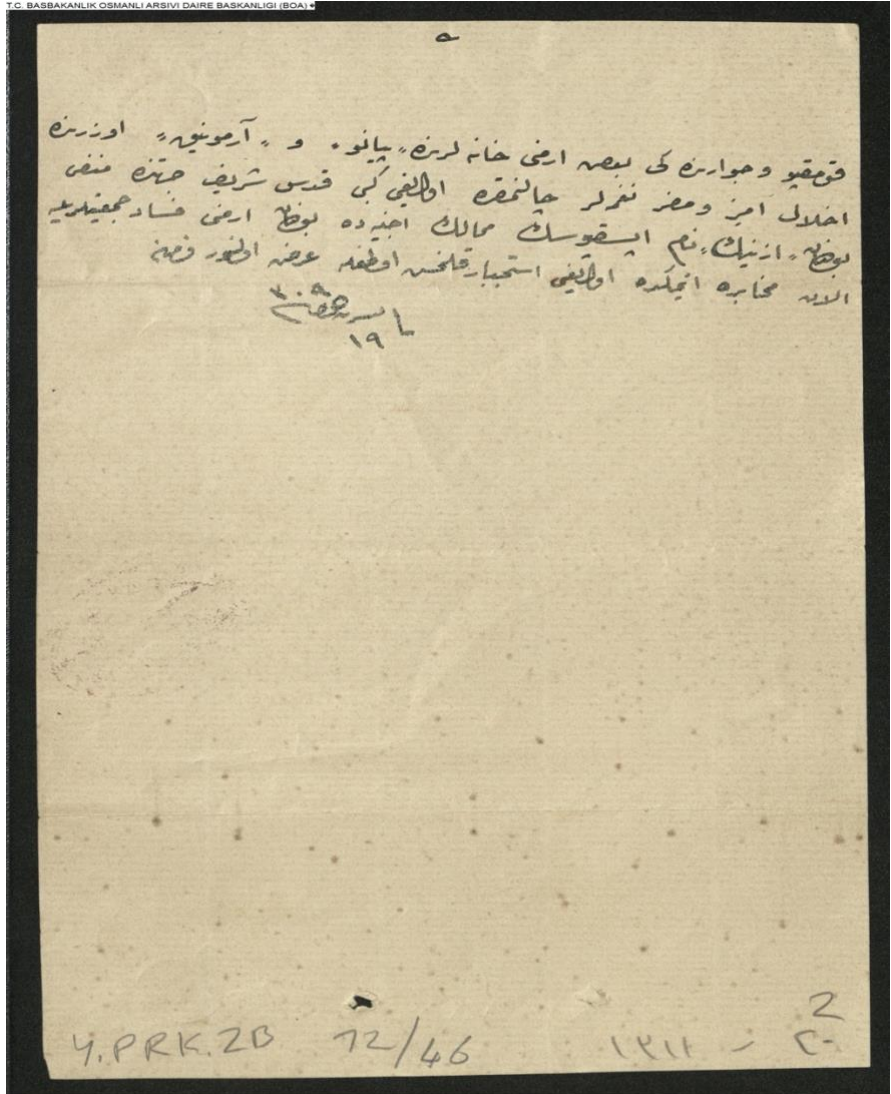 T.C. BASBAKANLIK OSMANLI ARSIVI DAIRE BASKANLIGI (BOA)
قومقپو و جوارنده كی بعض ارمنی خانه لرنده „پیانو“ و „آرمونیق“ اوزرنده
اخلال آمیز ومضر نغمه‌لر چالنمقده اولدیغی كبی قدس شریف جهتنه منفی
بولنان نام اپسقپوسك ممالك اجنبیه ده بولنان ارمنی فساد جمعیتلریله
الان مخابره ایتمكده اولدیغی استخبار قلنمش اولمغله عرض اولنور فرمان
١٩
Y.PRK.ZB 12/46
١٣١١ ر ٢٠
2